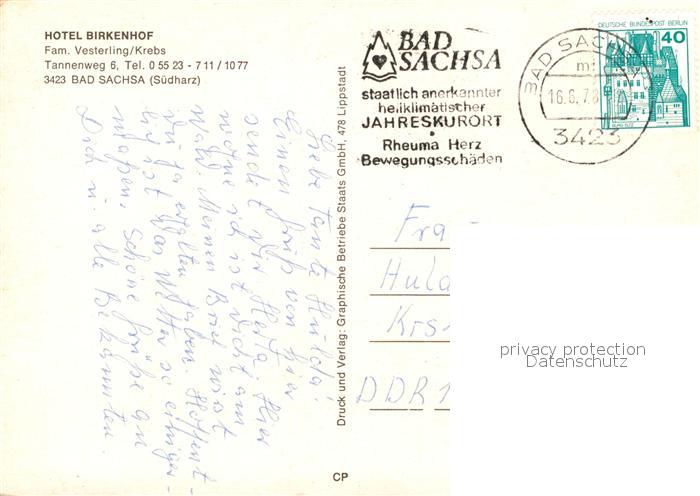 HOTEL BIRKENHOF
Fam. Vesterling/Krebs
Tannenweg 6, Tel. 0 55 23 - 7 11 / 10 77
3423 BAD SACHSA (Südharz)
BAD
SACHSA
staatlich anerkannter
heilklimatischer
JAHRESKURORT
Rheuma Herz
Bewegungsschäden
BAD SACHSA
16.6.78
3423
DEUTSCHE BUNDESPOST BERLIN
40
Liebe Tante Hulda!
Einen Gruß von hier
sendet Dir Herta. Hier
wohne ich ist nicht am
Wald. Meinen Brief wirst
Du ja erhalten haben. Hoffent-
lich ist das Wetter so einiger-
maßen. Schöne Grüße an
Dich u. alle Bekannten.
Druck und Verlag: Graphische Betriebe Staats GmbH, 478 Lippstadt
Fra
Hulda
Krs.
DDR 1
privacy protection
Datenschutz
CP